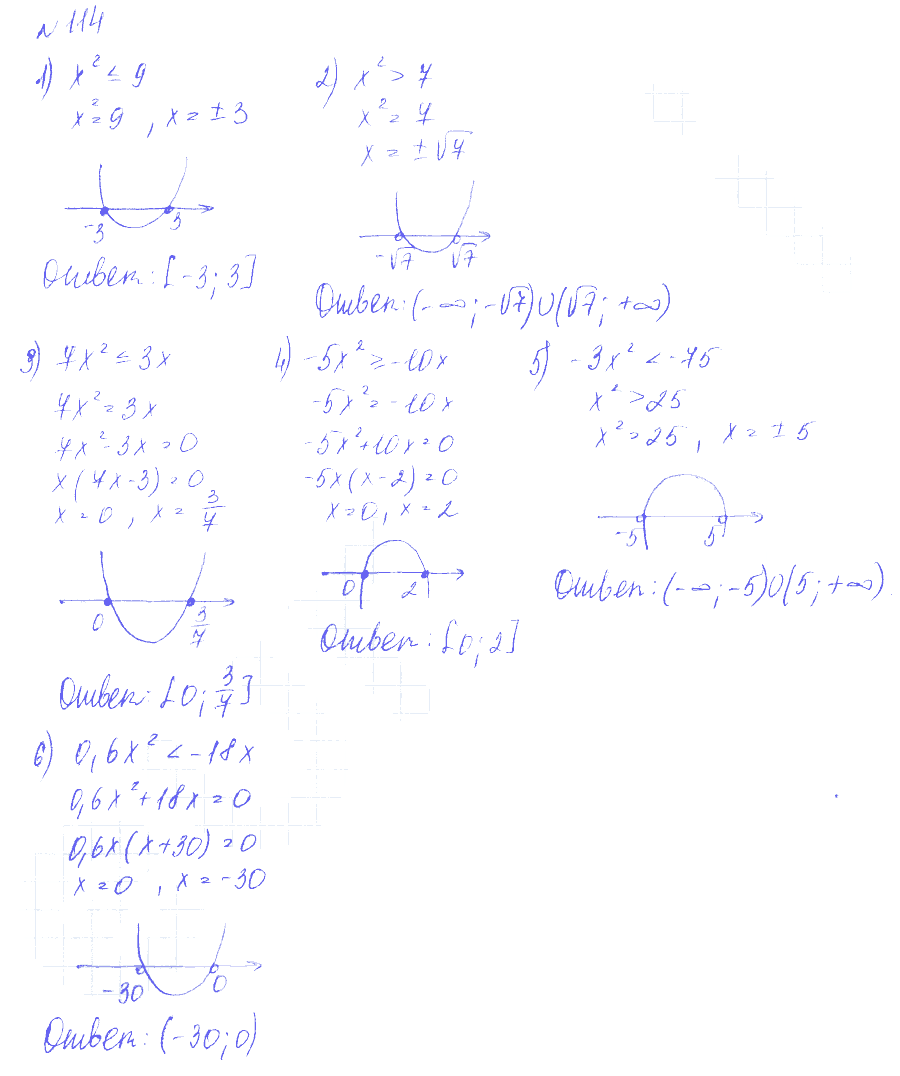 № 114
1) x² ≤ 9
x² = 9, x = ± 3
-3 3
Ответ: [-3; 3]
2) x² > 7
x² = 7
x = ± √7
-√7 √7
Ответ: (-∞; -√7)∪(√7; +∞)
3) 7x² ≤ 3x
7x² = 3x
7x² - 3x = 0
x(7x-3) = 0
x = 0, x = 3/7
0 3/7
Ответ: [0; 3/7]
4) -5x² ≥ -10x
-5x² = -10x
-5x² + 10x = 0
-5x(x-2) = 0
x = 0, x = 2
0 2
Ответ: [0; 2]
5) -3x² < -75
x² > 25
x² = 25, x = ± 5
-5 5
Ответ: (-∞; -5)∪(5; +∞)
6) 0,6x² < -18x
0,6x² + 18x = 0
0,6x(x+30) = 0
x = 0, x = -30
-30 0
Ответ: (-30; 0)